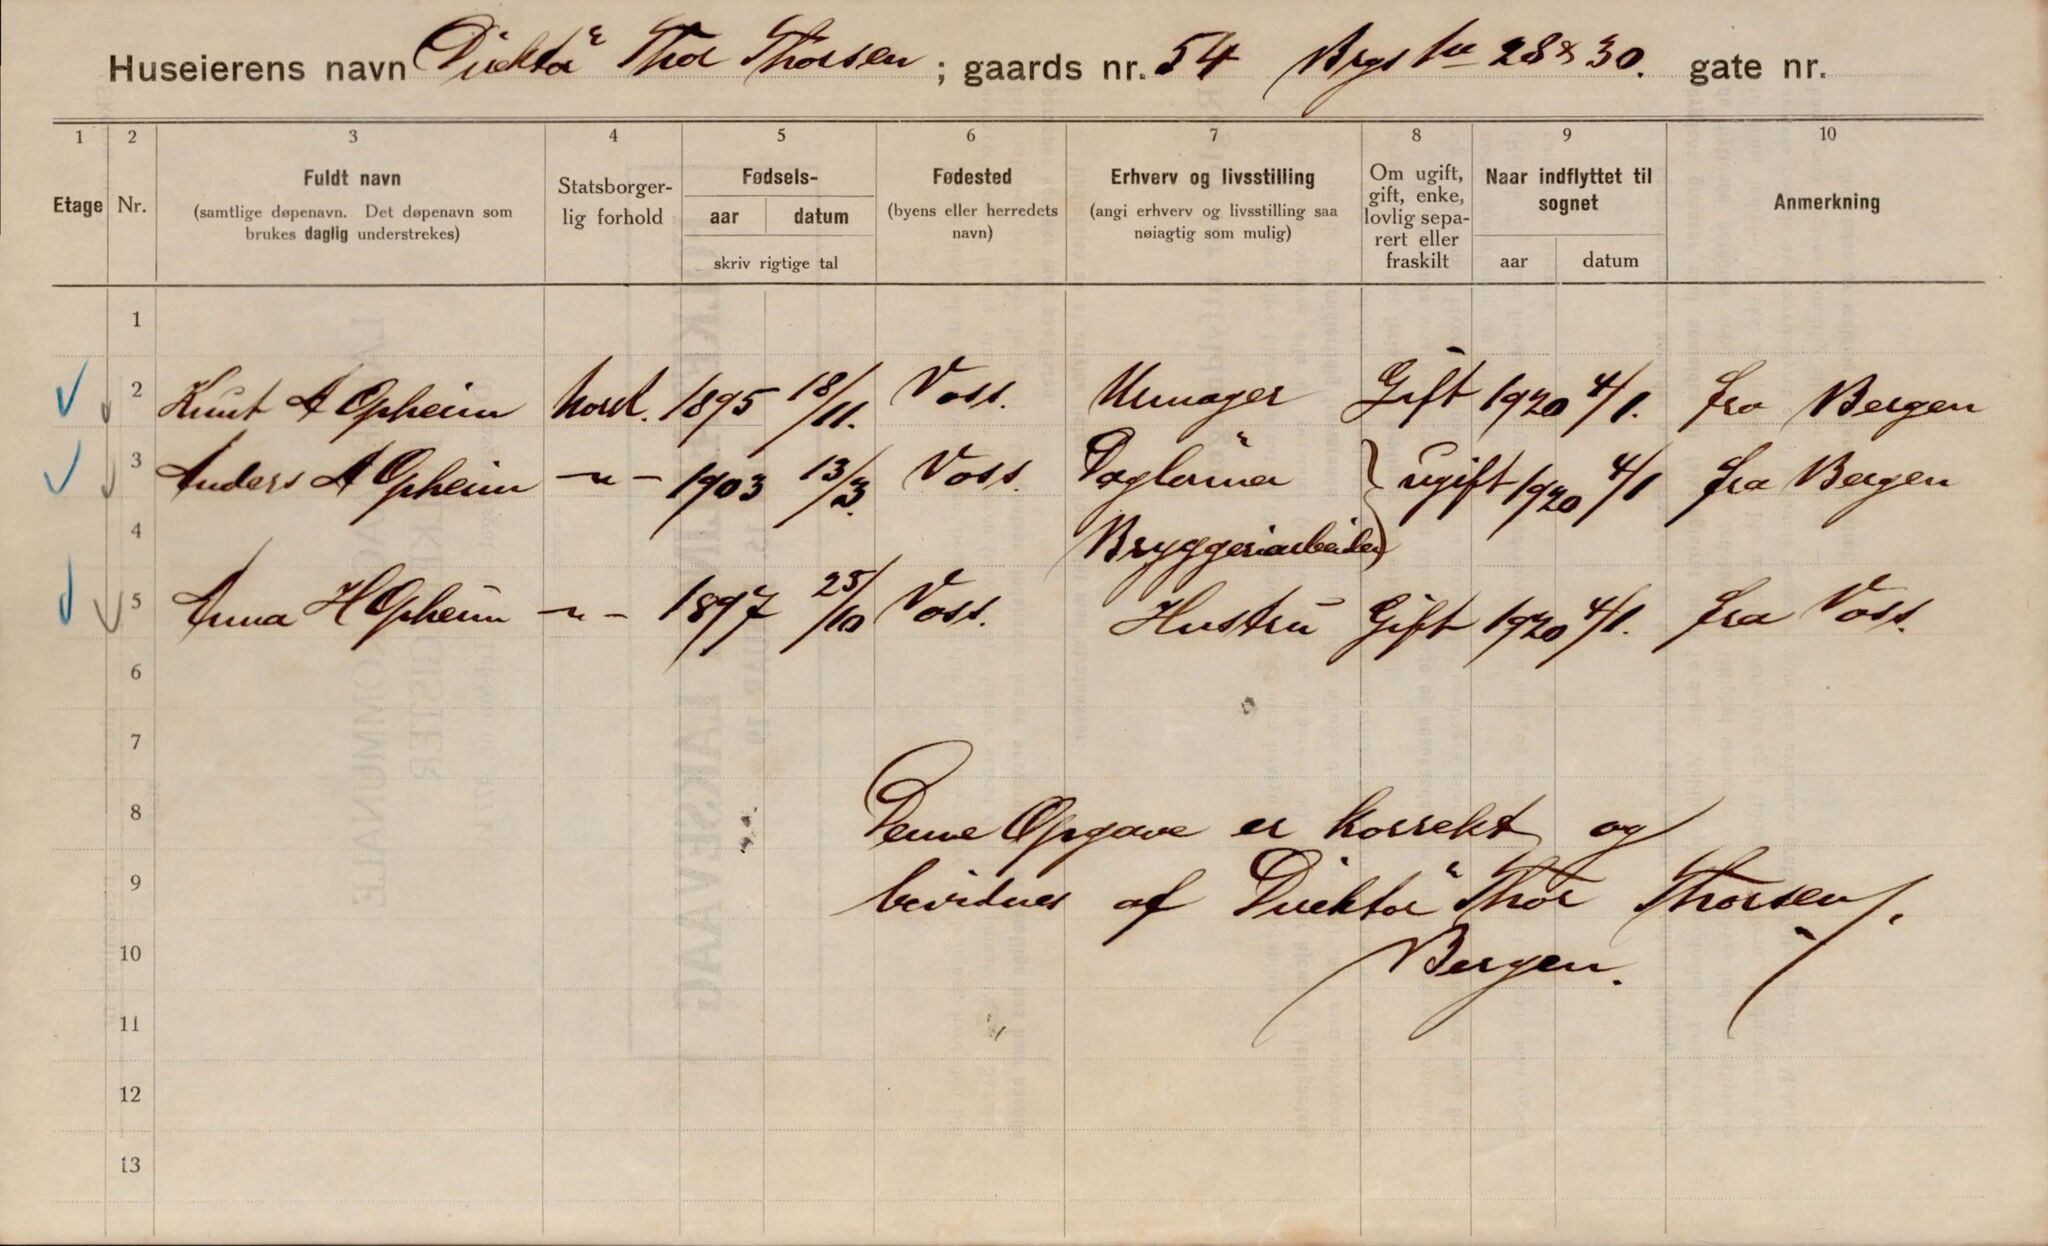 Huseierens navn Direktør Thor Thorsen ; gaards nr. 54 Brgs No 28 & 30. gate nr.
1 2 3 4 5 6 7 8 9 10
Etage Nr. Fuldt navn (samtlige døpenavn. Det døpenavn som brukes daglig understrekes) Statsborger-lig forhold Fødsels- aar datum skriv rigtige tal Fødested (byens eller herredets navn) Erhverv og livsstilling (angi erhverv og livsstilling saa nøiagtig som mulig) Om ugift, gift, enke, lovlig sepa-rert eller fraskilt Naar indflyttet til sognet aar datum Anmerkning
1
2 Knut A Opheim Norsk. 1895 18/11. Voss. Urmager Gift 1920 4/1. fra Bergen
3 Anders A Opheim -"- 1903 13/3. Voss. Dagløner } ugift 1920 4/1 fra Bergen
4 Bryggeriarbeider)
5 Anna H Opheim -"- 1897 25/10 Voss. Hustru Gift 1920 4/1. fra Voss.
6
7
8 Denne Opgave er korrekt og
9 bevidnes af Direktør Thor Thorsen
10 Bergen.
11
12
13